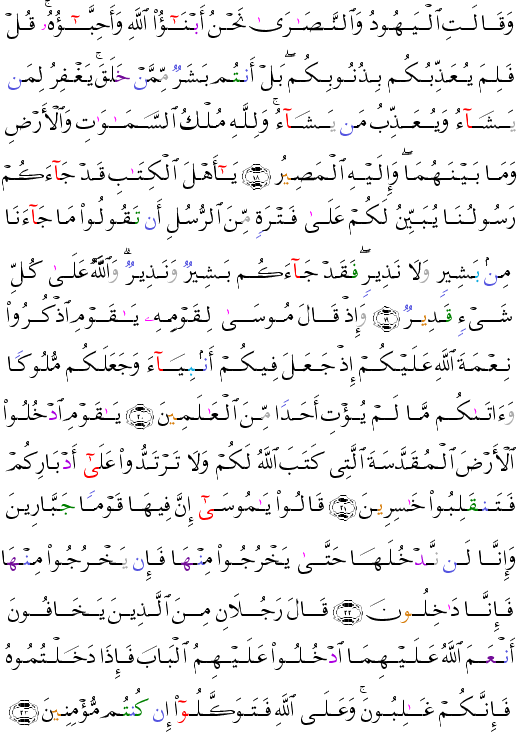 وَقَالَتِ ٱلْيَهُودُ وَٱلنَّصَـٰرَىٰ نَحْنُ أَبْنَـٰٓؤُا۟ ٱللَّهِ وَأَحِبَّـٰٓؤُهُۥ ۚ قُلْ
فَلِمَ يُعَذِّبُكُم بِذُنُوبِكُم ۖ بَلْ أَنتُم بَشَرٌ مِّمَّنْ خَلَقَ ۚ يَغْفِرُ لِمَن
يَشَآءُ وَيُعَذِّبُ مَن يَشَآءُ ۚ وَلِلَّهِ مُلْكُ ٱلسَّمَـٰوَٰتِ وَٱلْأَرْضِ
وَمَا بَيْنَهُمَا ۖ وَإِلَيْهِ ٱلْمَصِيرُ ﴿١٨﴾ يَـٰٓأَهْلَ ٱلْكِتَـٰبِ قَدْ جَآءَكُمْ
رَسُولُنَا يُبَيِّنُ لَكُمْ عَلَىٰ فَتْرَةٍ مِّنَ ٱلرُّسُلِ أَن تَقُولُوا۟ مَا جَآءَنَا
مِنۢ بَشِيرٍ وَلَا نَذِيرٍ ۖ فَقَدْ جَآءَكُم بَشِيرٌ وَنَذِيرٌ ۗ وَٱللَّهُ عَلَىٰ كُلِّ
شَىْءٍ قَدِيرٌ ﴿١٩﴾ وَإِذْ قَالَ مُوسَىٰ لِقَوْمِهِۦ يَـٰقَوْمِ ٱذْكُرُوا۟
نِعْمَةَ ٱللَّهِ عَلَيْكُمْ إِذْ جَعَلَ فِيكُمْ أَنۢبِيَآءَ وَجَعَلَكُم مُّلُوكًا
وَءَاتَىٰكُم مَّا لَمْ يُؤْتِ أَحَدًا مِّنَ ٱلْعَـٰلَمِينَ ﴿٢٠﴾ يَـٰقَوْمِ ٱدْخُلُوا۟
ٱلْأَرْضَ ٱلْمُقَدَّسَةَ ٱلَّتِى كَتَبَ ٱللَّهُ لَكُمْ وَلَا تَرْتَدُّوا۟ عَلَىٰٓ أَدْبَارِكُمْ
فَتَنقَلِبُوا۟ خَـٰسِرِينَ ﴿٢١﴾ قَالُوا۟ يَـٰمُوسَىٰٓ إِنَّ فِيهَا قَوْمًا جَبَّارِينَ
وَإِنَّا لَن نَّدْخُلَهَا حَتَّىٰ يَخْرُجُوا۟ مِنْهَا فَإِن يَخْرُجُوا۟ مِنْهَا
فَإِنَّا دَٰخِلُونَ ﴿٢٢﴾ قَالَ رَجُلَانِ مِنَ ٱلَّذِينَ يَخَافُونَ
أَنْعَمَ ٱللَّهُ عَلَيْهِمَا ٱدْخُلُوا۟ عَلَيْهِمُ ٱلْبَابَ فَإِذَا دَخَلْتُمُوهُ
فَإِنَّكُمْ غَـٰلِبُونَ ۚ وَعَلَى ٱللَّهِ فَتَوَكَّلُوٓا۟ إِن كُنتُم مُّؤْمِنِينَ ﴿٢٣﴾